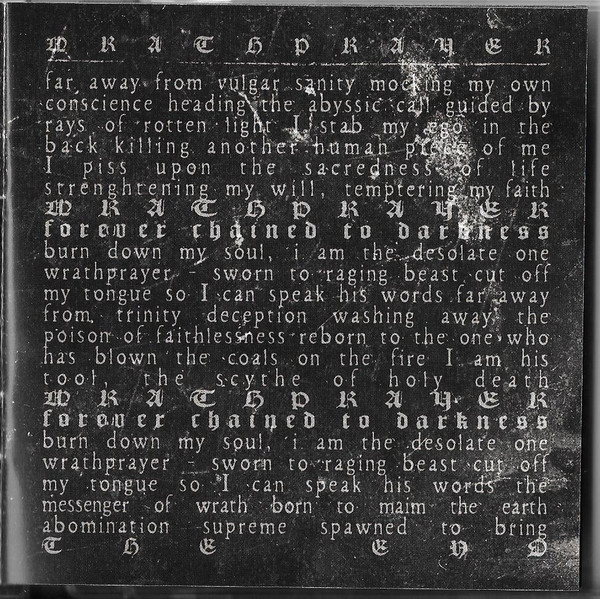 WRATHPRAYER
far away from vulgar sanity mocking my own
conscience heading the abyssic call guided by
rays of rotten light I stab my ego in the
back killing another human piece of me
I piss upon the sacredness of life
strenghtening my will, temptering my faith
WRATHPRAYER
forever chained to darkness
burn down my soul, i am the desolate one
wrathprayer - sworn to raging beast cut off
my tongue so I can speak his words far away
from trinity deception washing away the
poison of faithlessness reborn to the one who
has blown the coals on the fire I am his
tool, the scythe of holy death
WRATHPRAYER
forever chained to darkness
burn down my soul, i am the desolate one
wrathprayer - sworn to raging beast cut off
my tongue so I can speak his words the
messenger of wrath born to maim the earth
abomination supreme spawned to bring
THE END